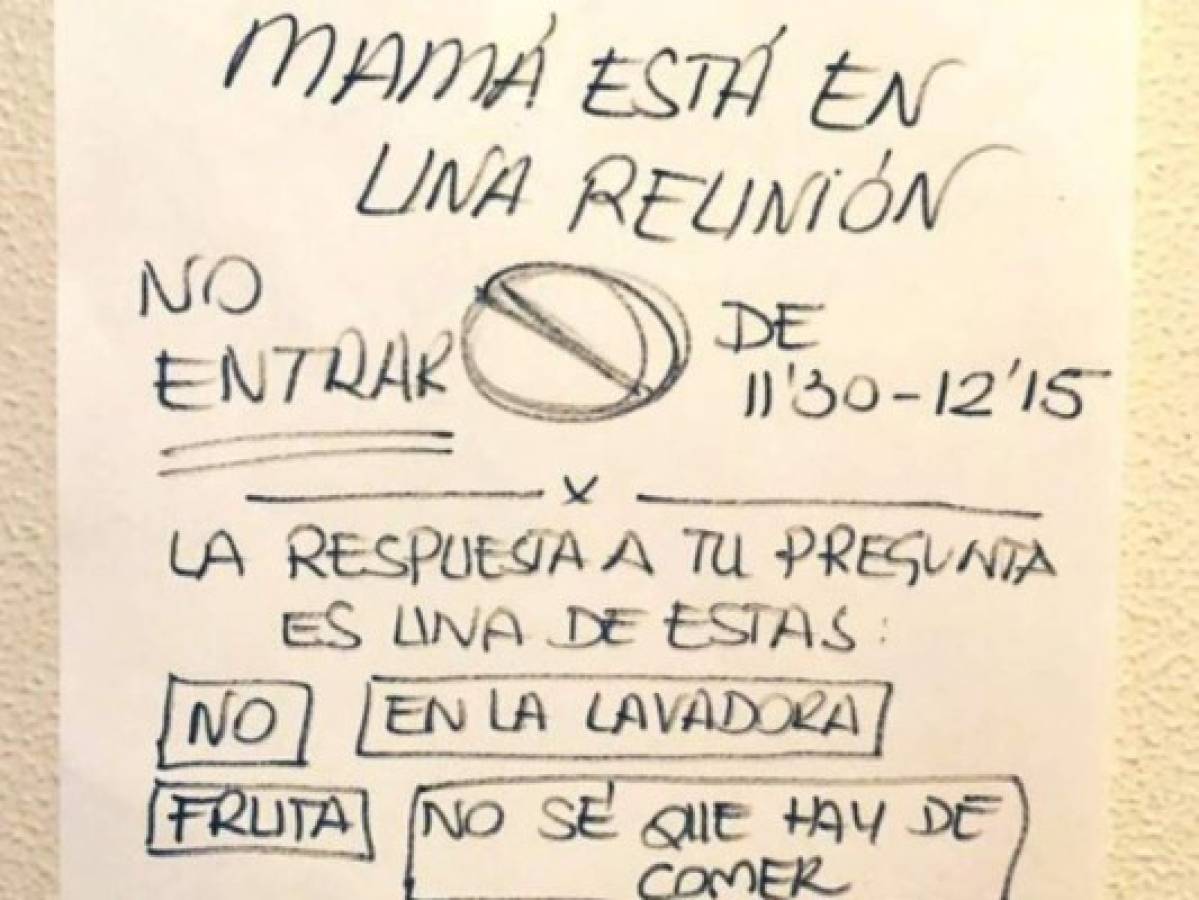 MAMÁ ESTÁ EN
UNA REUNIÓN
NO
ENTRAR
DE
11'30-12'15
x
LA RESPUESTA A TU PREGUNTA
ES UNA DE ESTAS:
NO
EN LA LAVADORA
FRUTA
NO SÉ QUE HAY DE
COMER